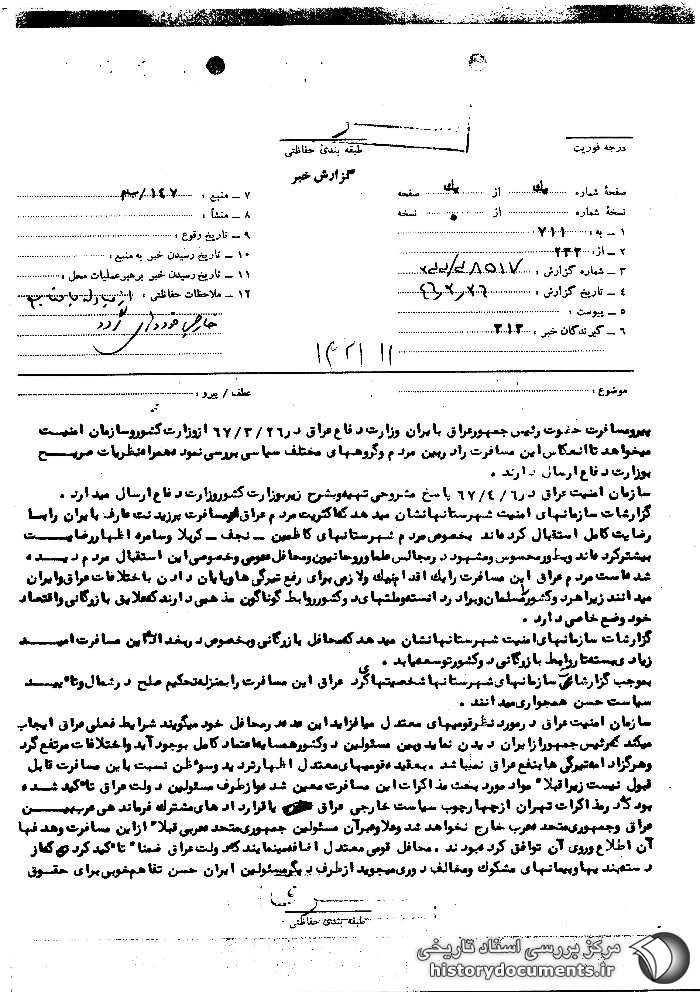 طبقه بندی حفاظتی
درجه فوریت
گزارش خبر
صفحهٔ شماره یک از یک صفحه
نسخهٔ شماره از نسخه
۱ ـ به : ۷۱۱
۲ ـ از : ۲۳۲
۳ ـ شماره گزارش :
۴ ـ تاریخ گزارش : ۴۶٫۳٫۲۶
۵ ـ پیوست :
۶ ـ گیرندگان خبر : ۳۱۲
۷ ـ منبع : ۱۴۷
۸ ـ منشأ :
۹ ـ تاریخ وقوع :
۱۰ ـ تاریخ رسیدن خبر به منبع :
۱۱ ـ تاریخ رسیدن خبر برهبر عملیات محل :
۱۲ ـ ملاحظات حفاظتی :
موضوع :
عطف / پیرو :
پیرومسافرت حضرت رئیس جمهورعراق بایران وزارت دفاع عراق در ۶۷/۳/۲۶ ازوزارت کشوروسازمان امنیت
میخواهد تاانعکاس این مسافرت رادربین مردم وگروههای مختلف سیاسی بررسی نموده همراه نظریات صریح
بوزارت دفاع ارسال دارند .
سازمان امنیت عراق در ۶۷/۴/۶ پاسخ مشروحی تهیه وبشرح زیربوزارت کشوروزارت دفاع ارسال میدارد .
گزارشات سازمانهای امنیت شهرستانهانشان میدهد که اکثریت مردم عراق ازمسافرت پرزیدنت عارف بایران رابا
رضایت کامل استقبال کرده‌اند بخصوص مردم شهرستانهای کاظمین ـ نجف ـ کربلا وسامره اظهاررضایت
بیشترکرده‌اند وبطورمحسوس ومشهود درمجالس علماوروحانیون ومحافل عمومی وخصوصی این استقبال مردم دیده
شده‌است مردم عراق این مسافرت رایک اقدام نیک ولازمی برای رفع تیرگی هاوپایان دادن باختلافات عراق وایران
میدانند زیراهردوکشورمسلمان وبرادردانسته وملتهای دوکشورروابط گوناگون مذهبی دارند که علایق بازرگانی واقتصاد
خود وضع خاصی دارد .
گزارشات سازمانهای امنیت شهرستانهانشان میدهد که محافل بازرگانی وبخصوص دربغداد باین مسافرت امید
زیادی بسته تاروابط بازرگانی دوکشورتوسعه یابد .
بموجب گزارشات سازمانهای شهرستانهاشخصیتهای کرد عراق این مسافرت رابمنزله تحکیم صلح درشمال وتأیید
سیاست حسن همجواری میدانند .
سازمان امنیت عراق درمورد نظرقومیهای معتدل میافزاید این عده درمحافل خود میگویند شرایط فعلی عراق ایجاب
میکند که رئیس جمهورازایران دیدن نماید وبین مسئولین دوکشورهمسایه اعتماد کامل بوجود آید واختلافات مرتفع گردد
وهرگزادامه تیرگی هابنفع عراق نمیباشد . بعقیده قومیهای معتدل اظهارتردید وسوءظن نسبت باین مسافرت قابل
قبول نیست زیراقبلا" مواد مورد بحث مذاکرات این مسافرت معین شده وازطرف مسئولین دولت عراق تأکید شده
بود که درمذاکرات تهران ازچهارچوب سیاست خارجی عراق یاقراردادهای مشترک فرماندهی عربی بین
عراق وجمهوری متحده عرب خارج نخواهد شد وعلاوه برآن مسئولین جمهوری متحده عربی قبلا" ازاین مسافرت وهدفهای
آن اطلاع وروی آن توافق کرده بودند . محافل قومی معتدل اضافه مینمایند که دولت عراق ضمنا" تأکید کرده که از
دسته‌بندیهاوپیمانهای مشکوک ومخالف دوری میجوید ازطرف دیگرمسئولین ایران حسن تفاهم خوبی برای حقوق
طبقه بندی حفاظتی
مرکز بررسی اسناد تاریخی
historydocuments.ir